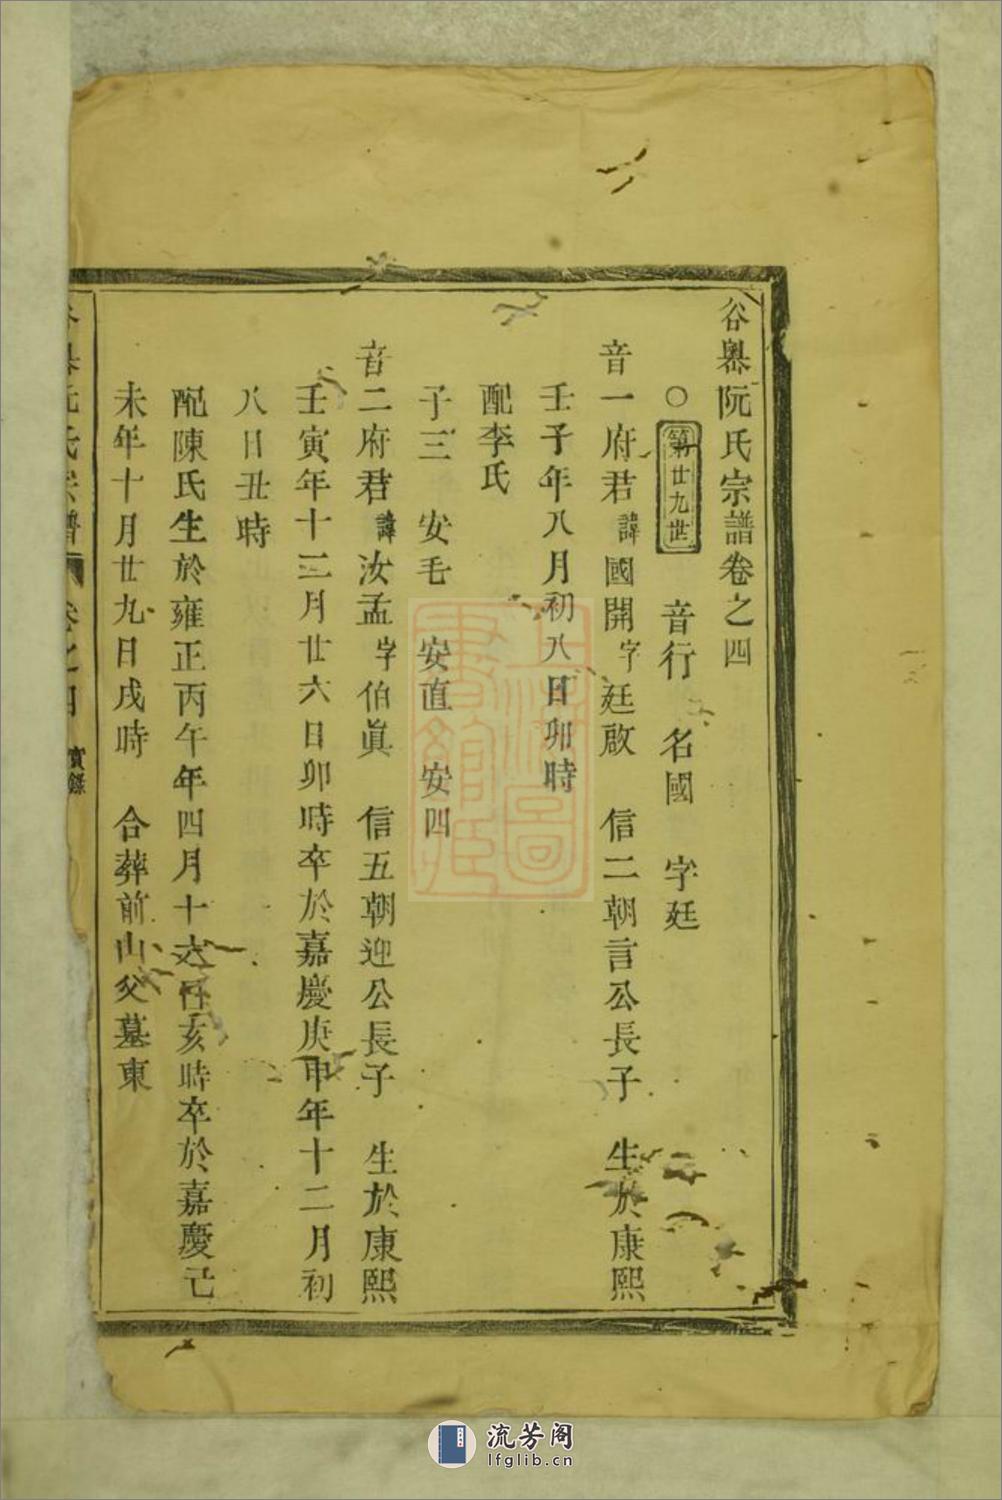 谷㟧阮氏宗譜卷之四
○ 第廿九世 音行 名國 字廷
音一府君諱國開字廷啟 信二朝言公長子 生於康熙
壬子年八月初八日卯時
配李氏
子三 安毛 安直 安四
音二府君諱汝孟字伯眞 信五朝迎公長子 生於康熙
壬寅年十二月廿六日卯時卒於嘉慶庚申年十二月初
八日丑時
配陳氏生於雍正丙午年四月十六日亥時卒於嘉慶己
未年十月廿九日戌時 合葬前山父墓東
阮氏宗譜 卷之四 實錄
上海圖書館藏
流芳阁
lfglib.cn